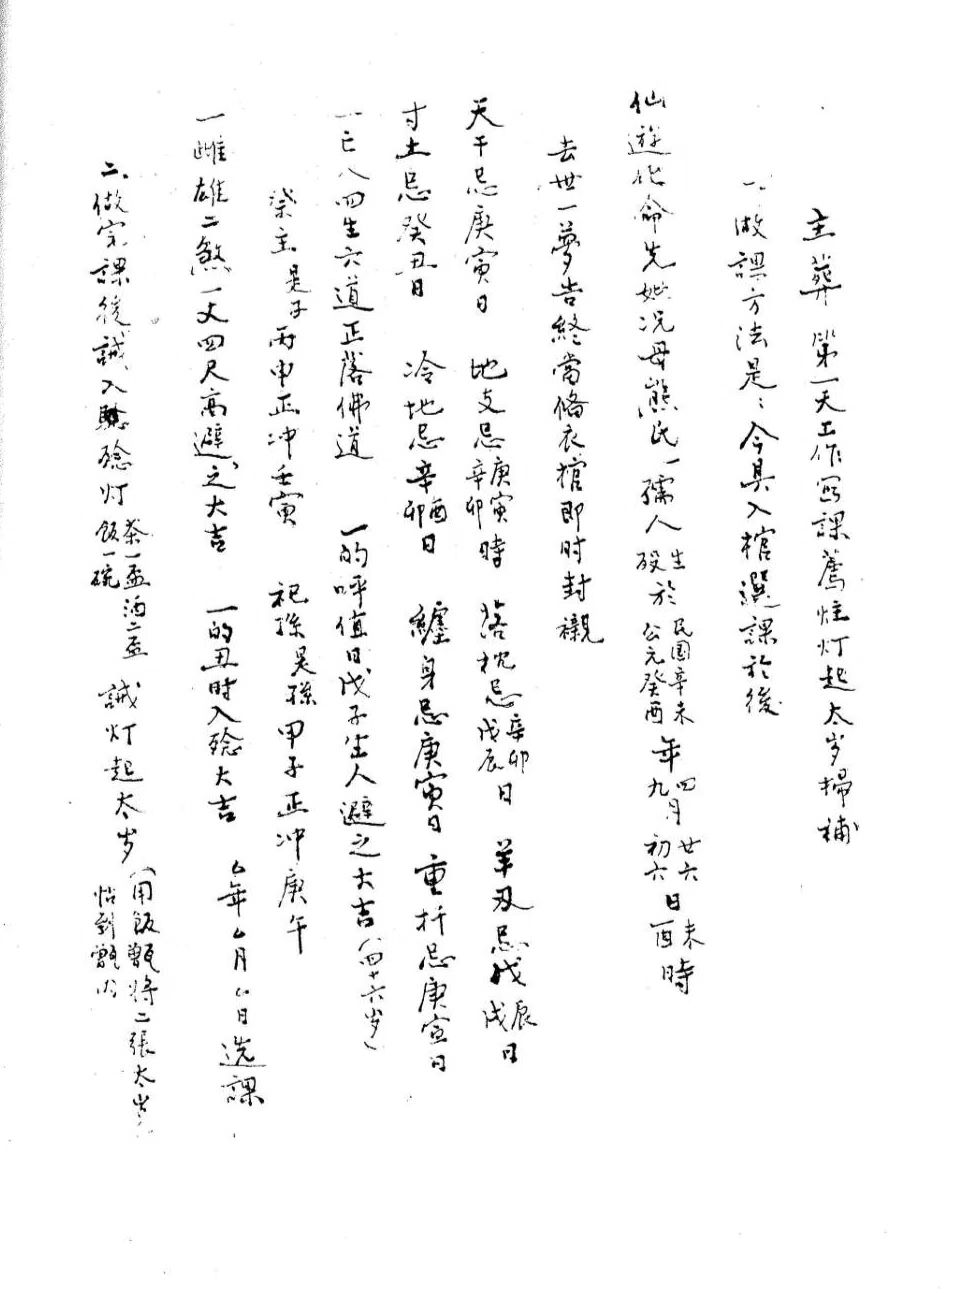 主葬第一天工作写課薦烓灯起太岁掃補
一、做課方法是：今具入棺選課於後
仙遊化命先妣况母熊氏一孺人生殁於民国辛未公元癸酉年四月九月廿六初六日未酉時
去世一夢告終當俻衣棺即时封襯
天干忌庚寅日 地支忌庚寅辛卯時 落枕忌辛卯戊辰日 羊刃忌戊辰戊日
寸土忌癸丑日 冷地忌辛酉卯日 纏身忌庚寅日 重拆忌庚寅日
一亡八四生六道正落佛道 一的呼值日戊子生人避之大吉(四十六岁)
祭主是子丙申正冲壬寅 祀孫昊孫甲子正冲庚午
一雌雄二煞一丈四尺高避之大吉 一的丑时入殓大吉 厶年厶月厶日选課
二、做完課後誠入殓灯茶一盃飯一碗酒二盃 誠灯起太岁(用飯甑将二張太岁怗到甑内